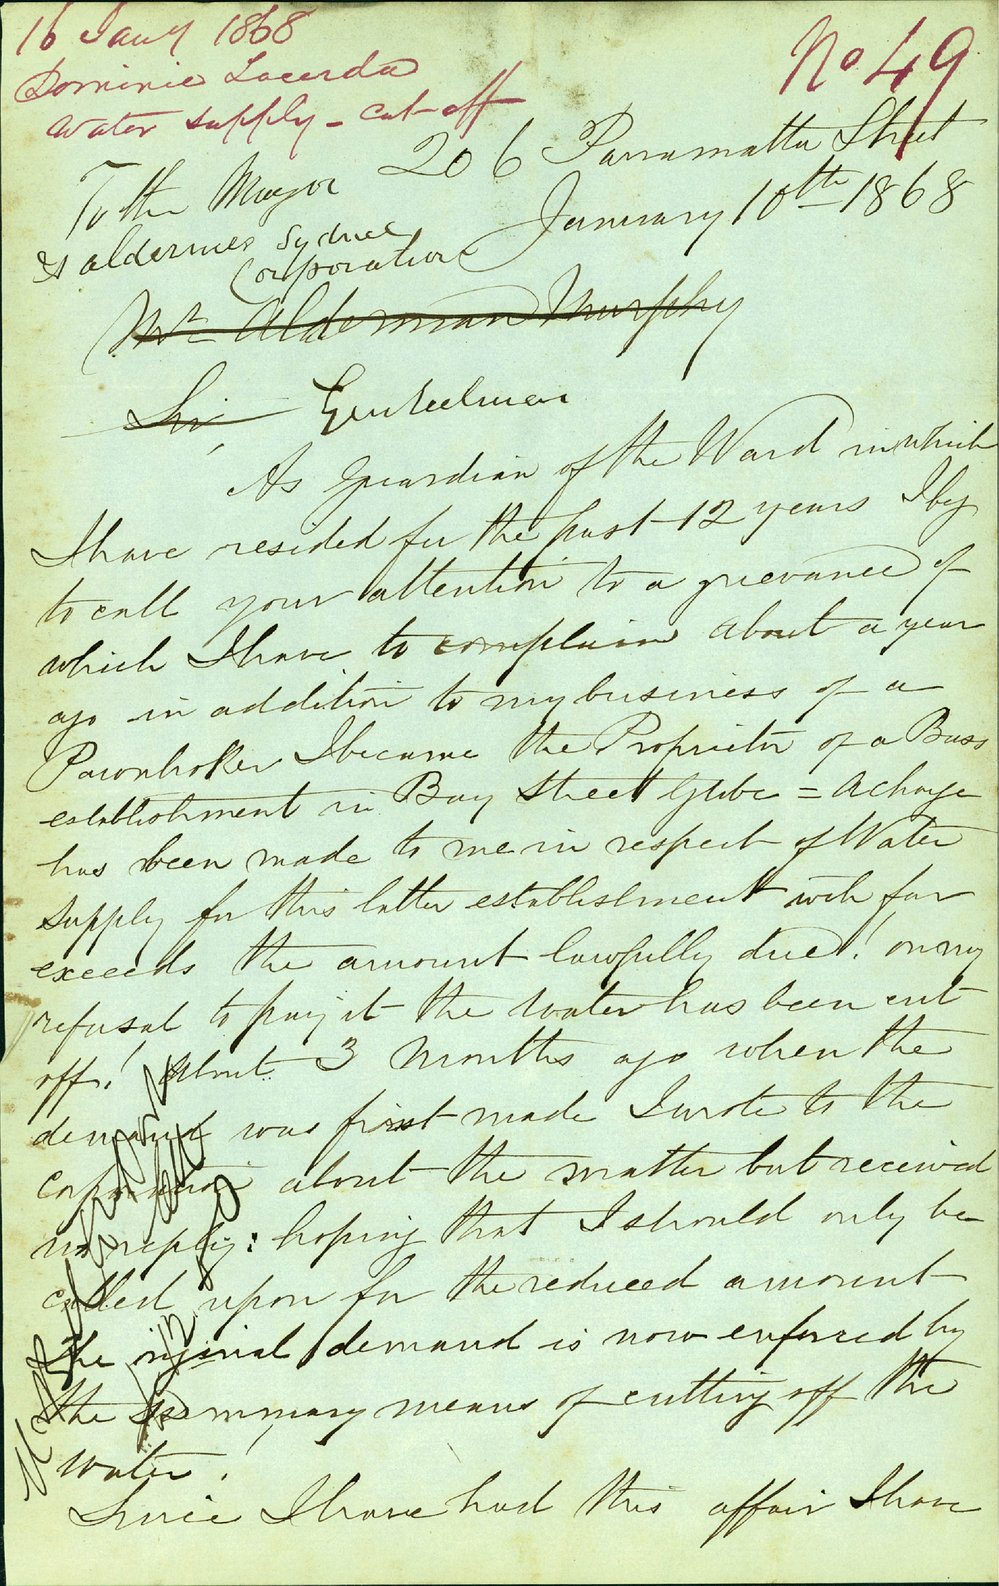 16 Jany 1868
No 49
Dominic Lacerda
Water supply - cut off
206 Parramatta Street
To the Mayor
January 10th 1868
& aldermen Sydney
Corporation
Mr Alderman Murphy
Sir Gentlemen
As Guardian of the Ward in which
I have resided for the past 12 years I beg
to call your attention to a grievance of
which I have to complain about a year
ago in addition to my business of a
Pawnbroker I became the Proprietor of a Buss
establishment in Bay Street Glebe = A charge
has been made to me in respect of Water
supply for this latter establishment wch far
exceeds the amount lawfully due! on my
refusal to pay it the water has been cut
off! About 3 Months ago when the
demand was first made I wrote to the
corporation about the matter but received
no reply: hoping that I should only be
called upon for the reduced amount
the original demand is now enforced by
the summary means of cutting off the
water!
Since I have had this affair I have